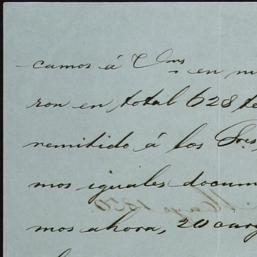 camos á Vms en nu
ron en total 628 te
remitido á los Sres
mos iguales docum
mos ahora, 20 carg